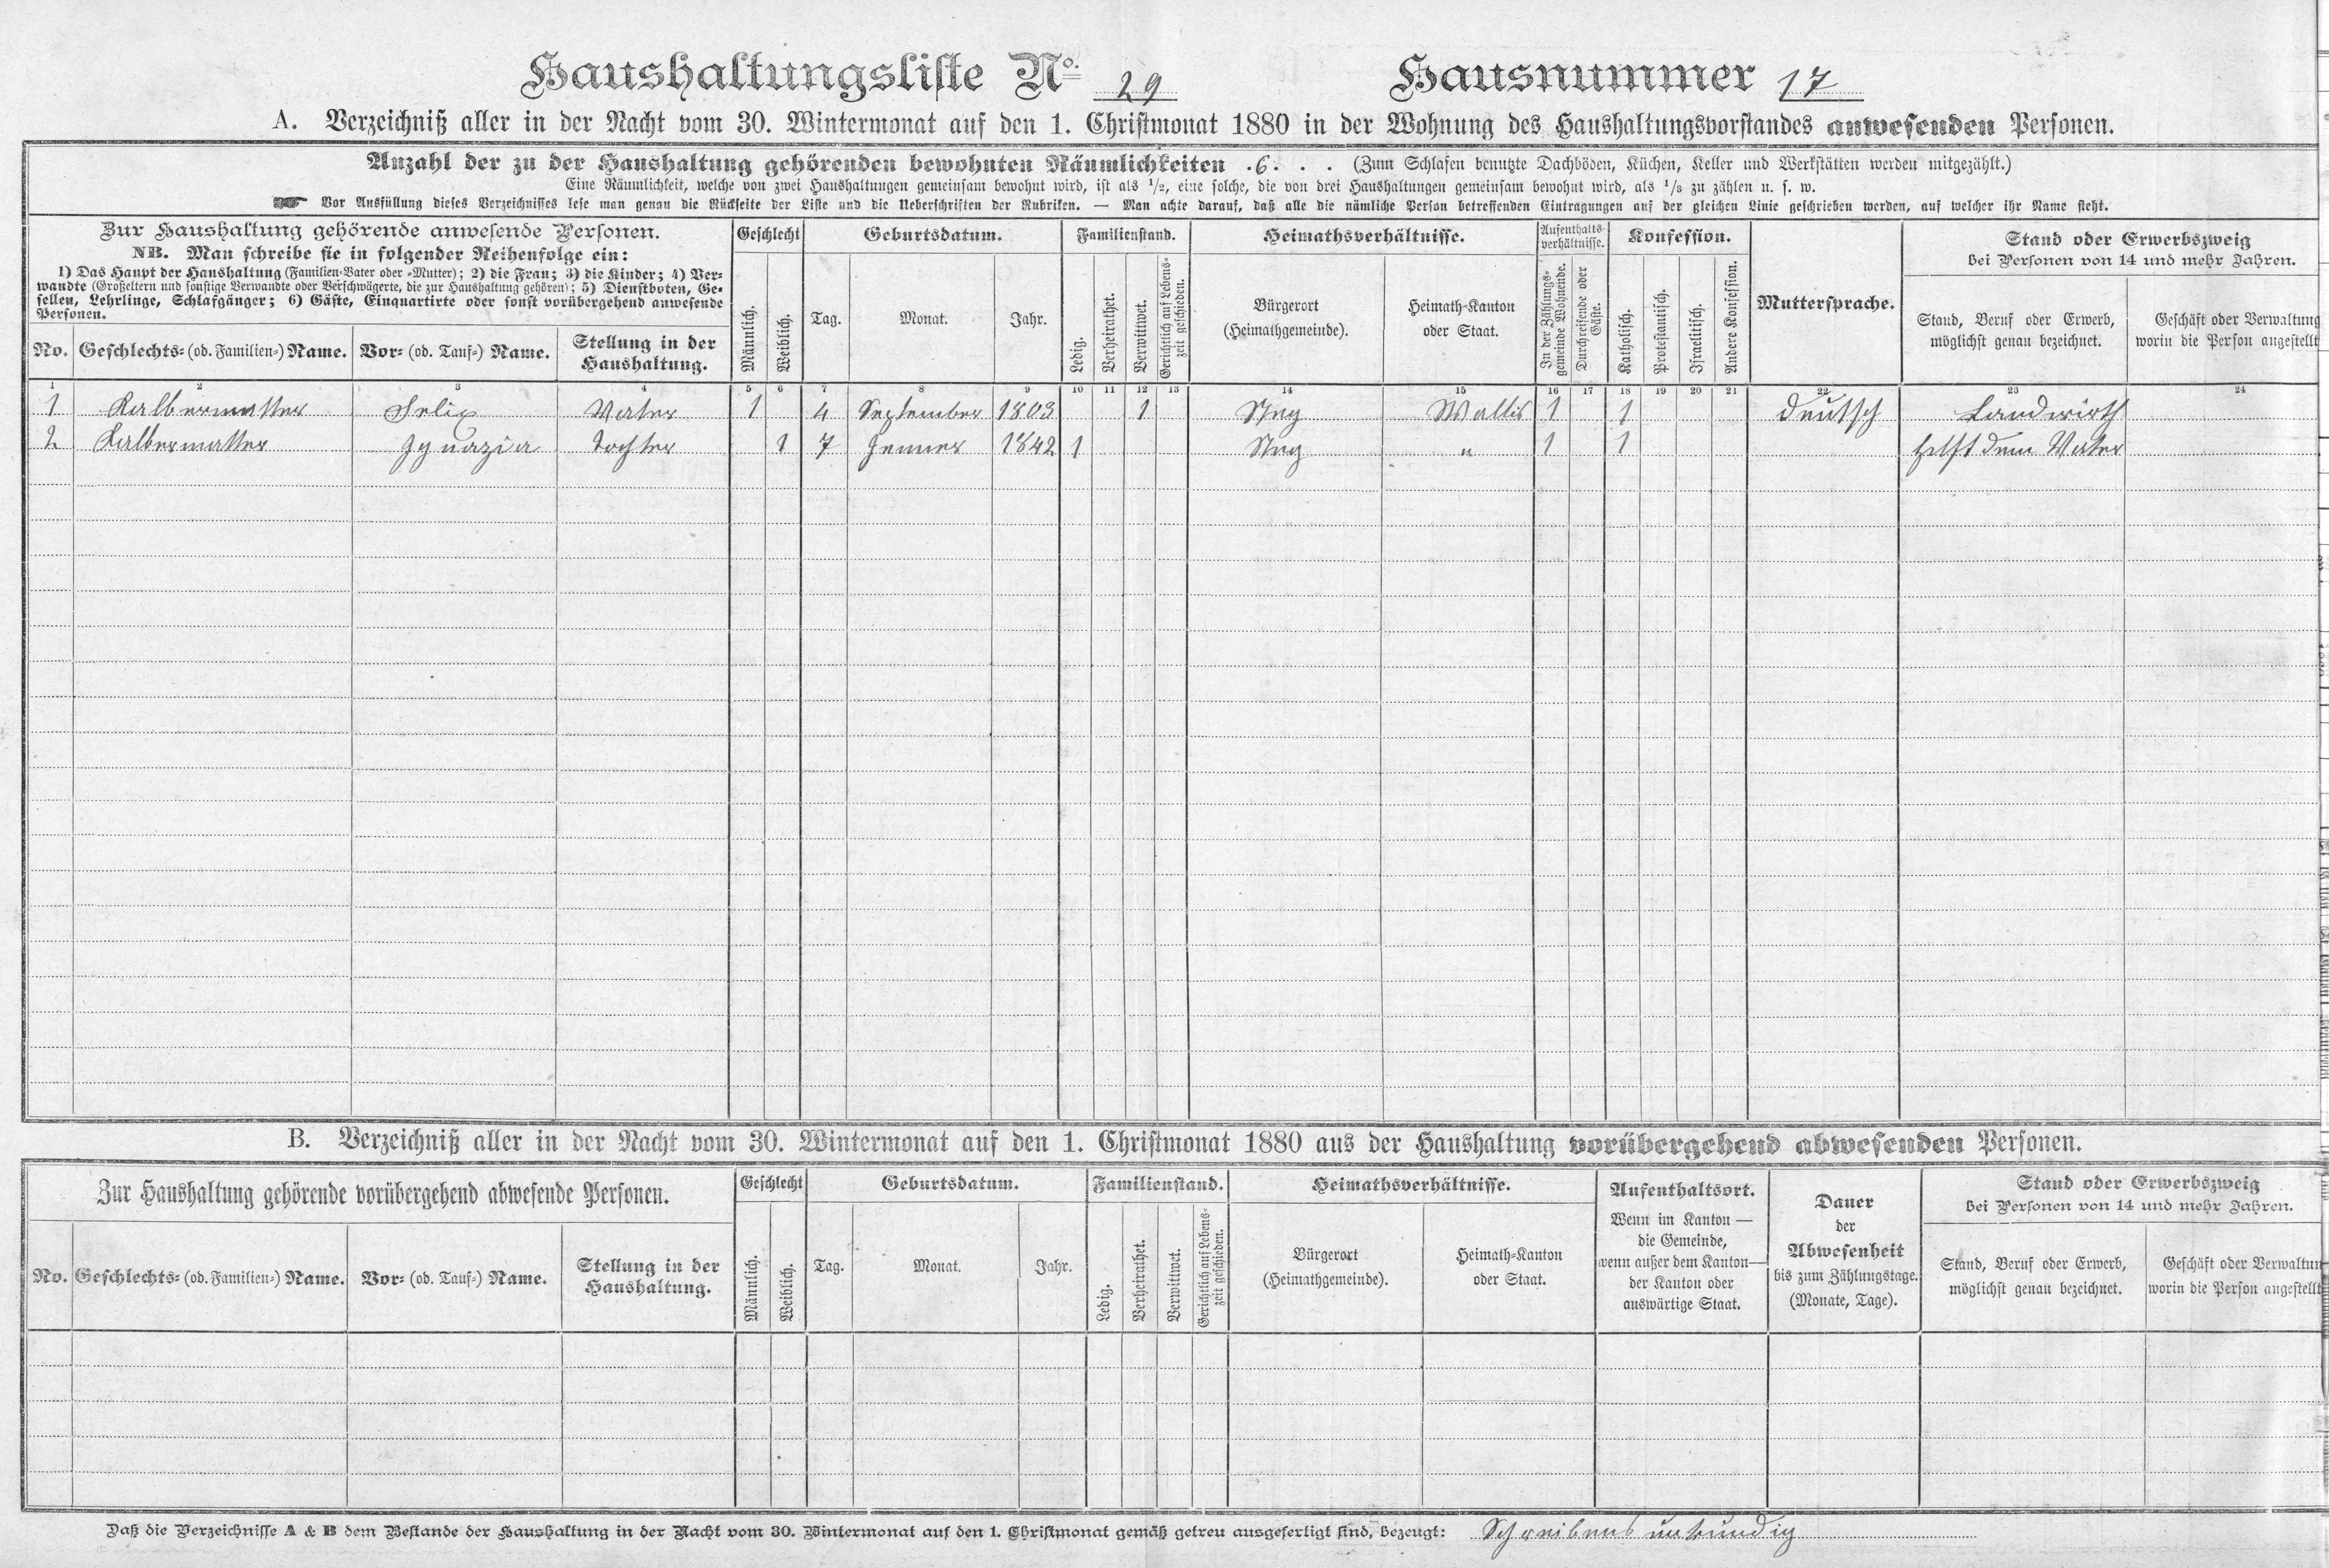 Haushaltungsliste No. 29 Hausnummer 17
A. Verzeichniß aller in der Nacht vom 30. Wintermonat auf den 1. Christmonat 1880 in der Wohnung des Haushaltungsvorstandes anwesenden Personen.
Anzahl der zu der Haushaltung gehörenden bewohnten Räumlichkeiten . 6 . . . (Zum Schlafen benutzte Dachböden, Küchen, Keller und Werkstätten werden mitgezählt.)
Eine Räumlichkeit, welche von zwei Haushaltungen gemeinsam bewohnt wird, ist als 1/2, eine solche, die von drei Haushaltungen gemeinsam bewohnt wird, als 1/3 zu zählen u. s. w.
☛ Vor Ausfüllung dieses Verzeichnisses lese man genau die Rückseite der Liste und die Ueberschriften der Rubriken. — Man achte darauf, daß alle die nämliche Person betreffenden Eintragungen auf der gleichen Linie geschrieben werden, auf welcher ihr Name steht.
Zur Haushaltung gehörende anwesende Personen.
NB. Man schreibe sie in folgender Reihenfolge ein:
1) Das Haupt der Haushaltung (Familien-Vater oder -Mutter); 2) die Frau; 3) die Kinder; 4) Ver-
wandte (Großeltern und sonstige Verwandte oder Verschwägerte, die zur Haushaltung gehören); 5) Dienstboten, Ge-
sellen, Lehrlinge, Schlafgänger; 6) Gäste, Einquartirte oder sonst vorübergehend anwesende
Personen.
No. Geschlechts- (od. Familien-) Name. Vor- (od. Tauf-) Name. Stellung in der
Haushaltung.
Geschlecht
Männlich. Weiblich.
Geburtsdatum.
Tag. Monat. Jahr.
Familienstand.
Ledig. Verheirathet. Verwittwet. Gerichtlich auf Lebens-
zeit geschieden.
Heimathsverhältnisse.
Bürgerort
(Heimathgemeinde).
Heimath-Kanton
oder Staat.
Aufenthalts-
verhältnisse.
In der Zählungs-
gemeinde Wohnende.
Durchreisende oder
Gäste.
Konfession.
Katholisch. Protestantisch. Israelitisch. Andere Konfession.
Muttersprache.
Stand oder Erwerbszweig
bei Personen von 14 und mehr Jahren.
Stand, Beruf oder Erwerb,
möglichst genau bezeichnet.
Geschäft oder Verwaltung
worin die Person angestellt
1 2 3 4 5 6 7 8 9 10 11 12 13 14 15 16 17 18 19 20 21 22 23 24
1 Kalbermatter Felix Vater 1 4 September 1803 1 Steg Wallis 1 1 deutsch Landwirth
2 Kalbermatter Ignazia Tochter 1 7 Jenner 1842 1 Steg " 1 1 hilft dem Vater
B. Verzeichniß aller in der Nacht vom 30. Wintermonat auf den 1. Christmonat 1880 aus der Haushaltung vorübergehend abwesenden Personen.
Zur Haushaltung gehörende vorübergehend abwesende Personen.
No. Geschlechts- (od. Familien-) Name. Vor- (od. Tauf-) Name. Stellung in der
Haushaltung.
Geschlecht
Männlich. Weiblich.
Geburtsdatum.
Tag. Monat. Jahr.
Familienstand.
Ledig. Verheirathet. Verwittwet. Gerichtlich auf Lebens-
zeit geschieden.
Heimathsverhältnisse.
Bürgerort
(Heimathgemeinde).
Heimath-Kanton
oder Staat.
Aufenthaltsort.
Wenn im Kanton —
die Gemeinde,
wenn außer dem Kanton—
der Kanton oder
auswärtige Staat.
Dauer
der
Abwesenheit
bis zum Zählungstage.
(Monate, Tage).
Stand oder Erwerbszweig
bei Personen von 14 und mehr Jahren.
Stand, Beruf oder Erwerb,
möglichst genau bezeichnet.
Geschäft oder Verwaltun
worin die Person angestellt
Daß die Verzeichnisse A & B dem Bestande der Haushaltung in der Nacht vom 30. Wintermonat auf den 1. Christmonat gemäß getreu ausgefertigt sind, bezeugt: Schreibens unkundig